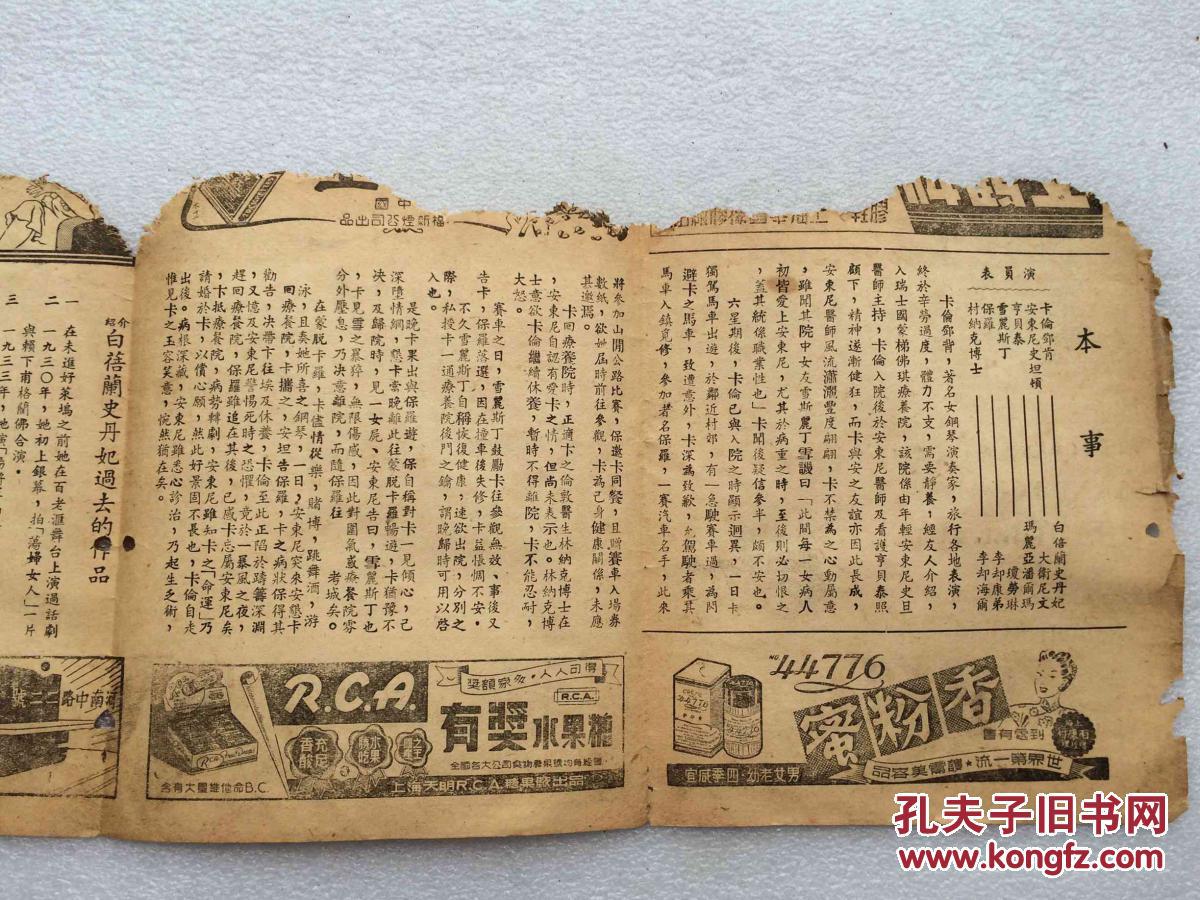 本事
演員表
卡倫鄧肯————白蓓蘭史丹妃
安東尼史坦頓————大衛尼文
亨貝泰————瑪麗亞潘爾瑪
雪麗斯丁————瓊勞琳
保羅————李却康弟
村納克博士————李却海爾
卡倫鄧肯，著名女鋼琴演奏家，旅行各地表演，
終於辛勞過度，體力不支，需要靜養，經友人介紹，
入瑞士國蒙梯佛琪療養院，該院係由年輕安東尼史旦
醫師主持，卡倫入院後於安東尼醫師及看護亨貝泰照
顧下，精神逐漸健狂，而卡與安之友誼亦因此長成，
安東尼醫師風流瀟灑豐度翩翩，卡不禁為之心動屬意
，雖聞其院中女友雪斯麗丁雪譏曰「此間每一女病人
初皆愛上安東尼，尤其於病重之時，至後則必切恨之
，蓋其統係職業性也」卡聞後疑信參半，頗不安也。
六星期後，卡倫已與入院之時顯示迥異，一日卡
獨駕馬車出遊，於鄰近村郊，有一急駛賽車過，為閃
避卡之馬車，致遭意外，卡深為致歉，允駕駛者乘其
馬車入鎮覓修，參加者名保羅，一賽汽車名手，此來
將參加山開公路比賽，保邀卡同餐，且贈賽車入場券
數紙，欲她屆時前往參觀，卡為己身健康關係，未應
其邀焉。
卡回療養院時，正適卡之倫敦醫生林納克博士在
，安東尼自認有愛卡之情，但尚未表示也。林納克博
士意欲卡倫繼續休養，暫時不得離院，卡不能忍耐，
大怒。
賽車之日，雪麗斯丁鼓勵卡往參觀無效，事後又
告卡，保羅落選，因在撞車後失修，卡益悵惆不安。
不久雪麗斯丁自稱恢復健康，速欲出院，分別之
際，私授卡一通療養院後門之鑰，謂晚歸時可用以啓
入也。
是晚卡果出與保羅遊，保自稱對卡一見傾心，己
深墮情網，懇卡當晚離此往蒙脫卡羅暢遊，卡猶豫不
決，及歸院時，見一女屍、安東尼告曰，雪麗斯丁也
，卡見雪之暴猝，無限傷感，因此對圍氣蔵療養院霧
分外壓怠，乃决意離院，而隨保羅往老城矣。
在蒙脫卡羅，卡儘情從樂，賭博，跳舞酒，游
泳，且奏她所喜之鋼琴，一日，安東尼突來安懇卡
回療養院，卡攜之，安坦告保羅，卡之病狀保得其
勸告，決帶卡往埃及休養，卡倫至此正陷於躊躇深淵
，又憶及安東尼警惕死時之恐懼，竟於一暴風之夜，
趕回療養院，保羅雖追在其後，已感卡忘屬安東尼矣
，卡抵療養院，病勢轉劇，安東尼，雖知卡之「命運」乃
請婚於卡，以償心願，然此好景固不長也，卡倫自走
出後。病根深藏，安東尼雖悉心診治，乃起生乏術，
惟見卡之玉容笑意，惋然猶在矣。
介紹白蓓蘭史丹妃過去的作品
一 在未進好萊塢之前她在百老滙舞台上演過話劇
二 一九三〇年，她初上銀幕，拍「蕩婦女人」一片
與賴下甫格蘭佛合演・
三 一九三三年，她演
中國
福新煙公司出品
NO. 44776
香粉蜜
到處有售
世界第一流★護膚美容品
男女老幼・四季咸宜
R.C.A.
得可人人・多家額獎
R.C.A.
有獎水果糖
充足香酸
全國各大公司食物糖果號均有經售
上海天明R.C.A.糖果廠出品
含有大量維他命B.C.
河南中路二二號
孔夫子旧书网
www.kongfz.com